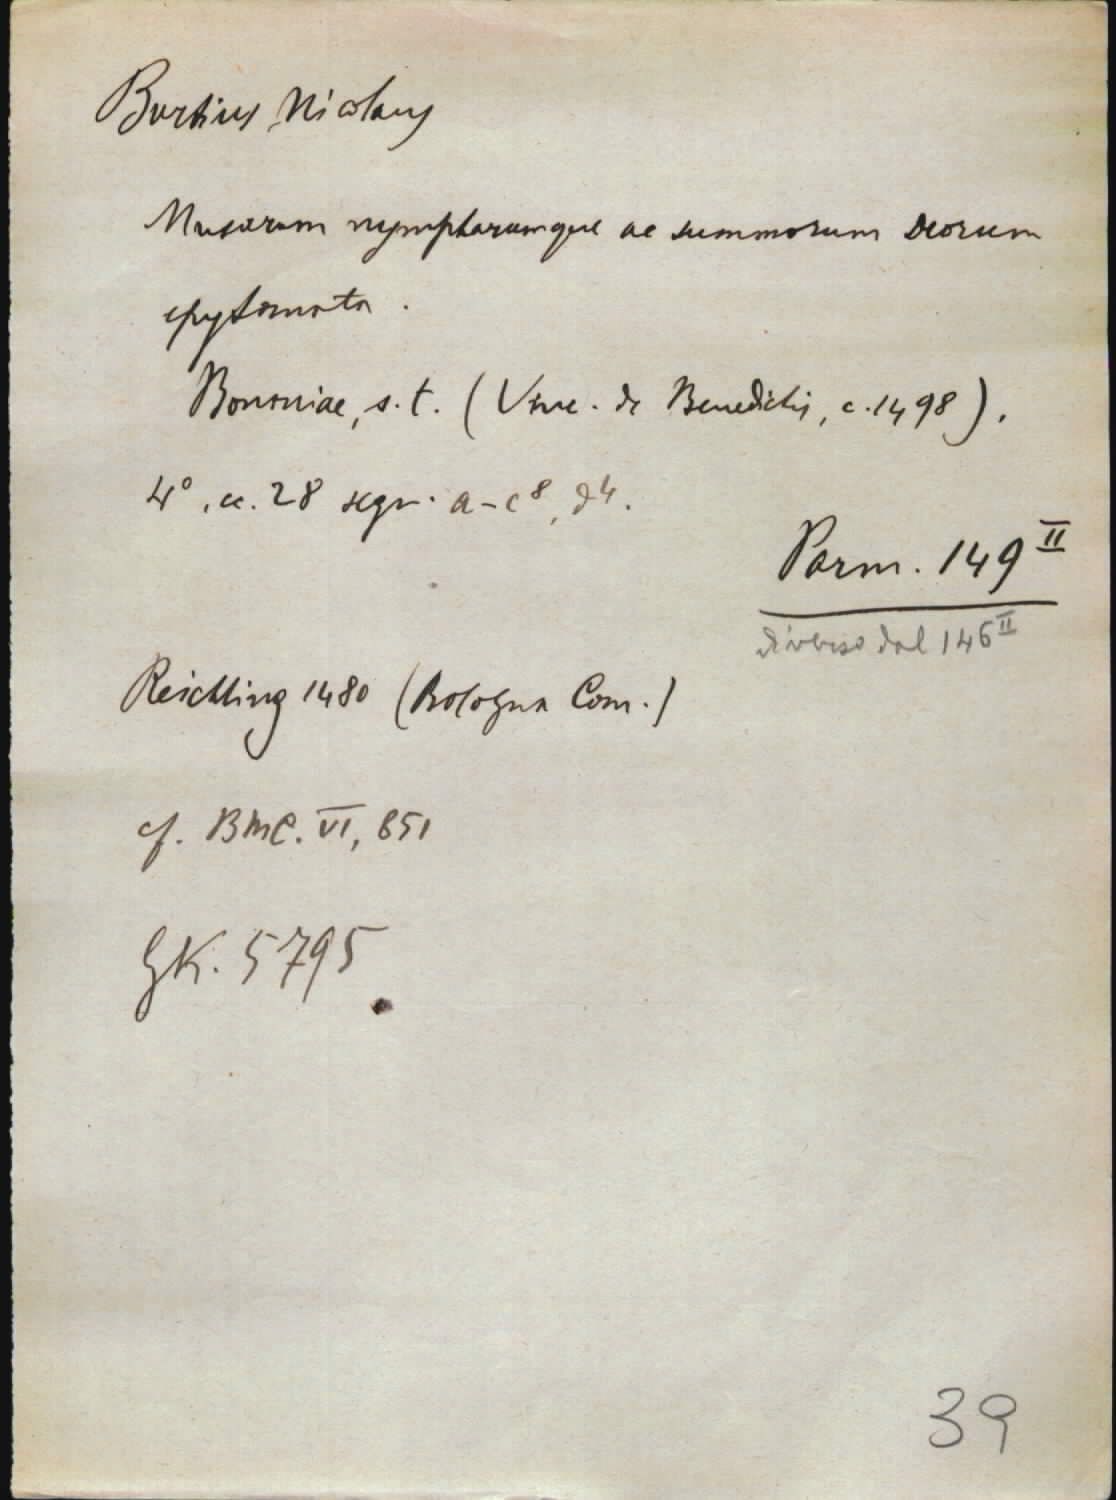 Burtius, Nicolaus
Musarum nympharumque ac summorum deorum
epytomata.
Bononiae, s.t. (Vinc. de Benedictis, c. 1498).
4°, cc. 28 segn. a-c⁸, d⁴.
Parm. 149 II
diverso dal 146 II
Reichling 1480 (Bologna Com.)
cf. BMC. VI, 851
GK. 5795
39